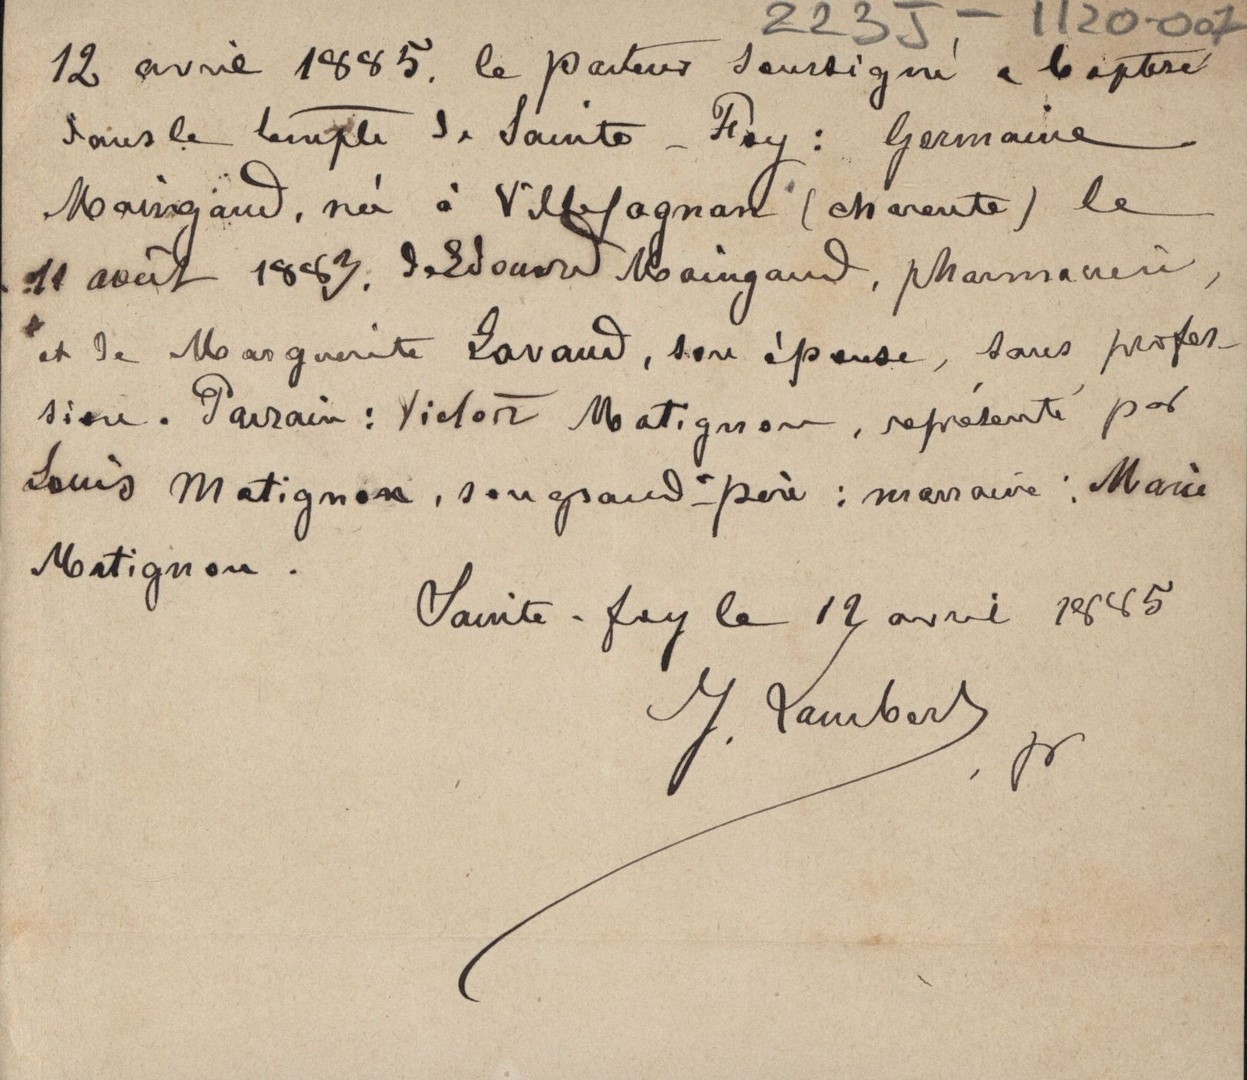 223J-1120-007
12 avril 1885. le pasteur soussigné a baptisé
dans le temple de Sainte-Foy : Germaine
Maingaud, née à Villefagnan (charente) le
11 août 1883, de Edouard Maingaud, pharmacien,
et de Marguerite Lavaud, son épouse, sans profes-
sion. Parrain : Victor Matignon, représenté par
Louis Matignon, son grand-père : marraine : Marie
Matignon.
Sainte-foy le 12 avril 1885
J. Lambert, pr